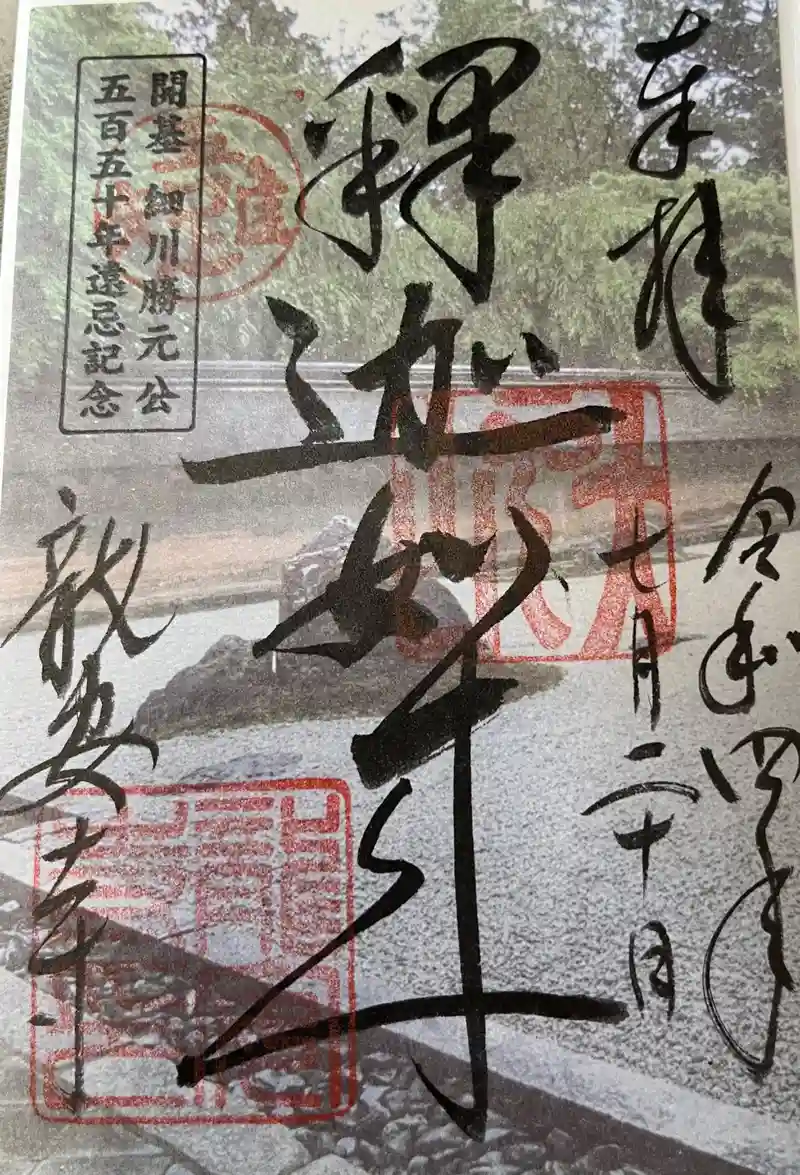 奉拝
令和四年
七月二十日
釋迦如来
開基 細川勝元公
五百五十年遠忌記念
龍安寺